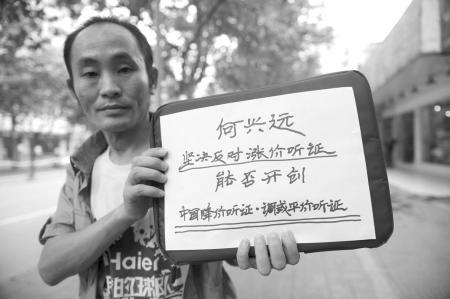 何兴远
坚决反对涨价听证
能否开创
中国降价听证·调或平价听证
Haier